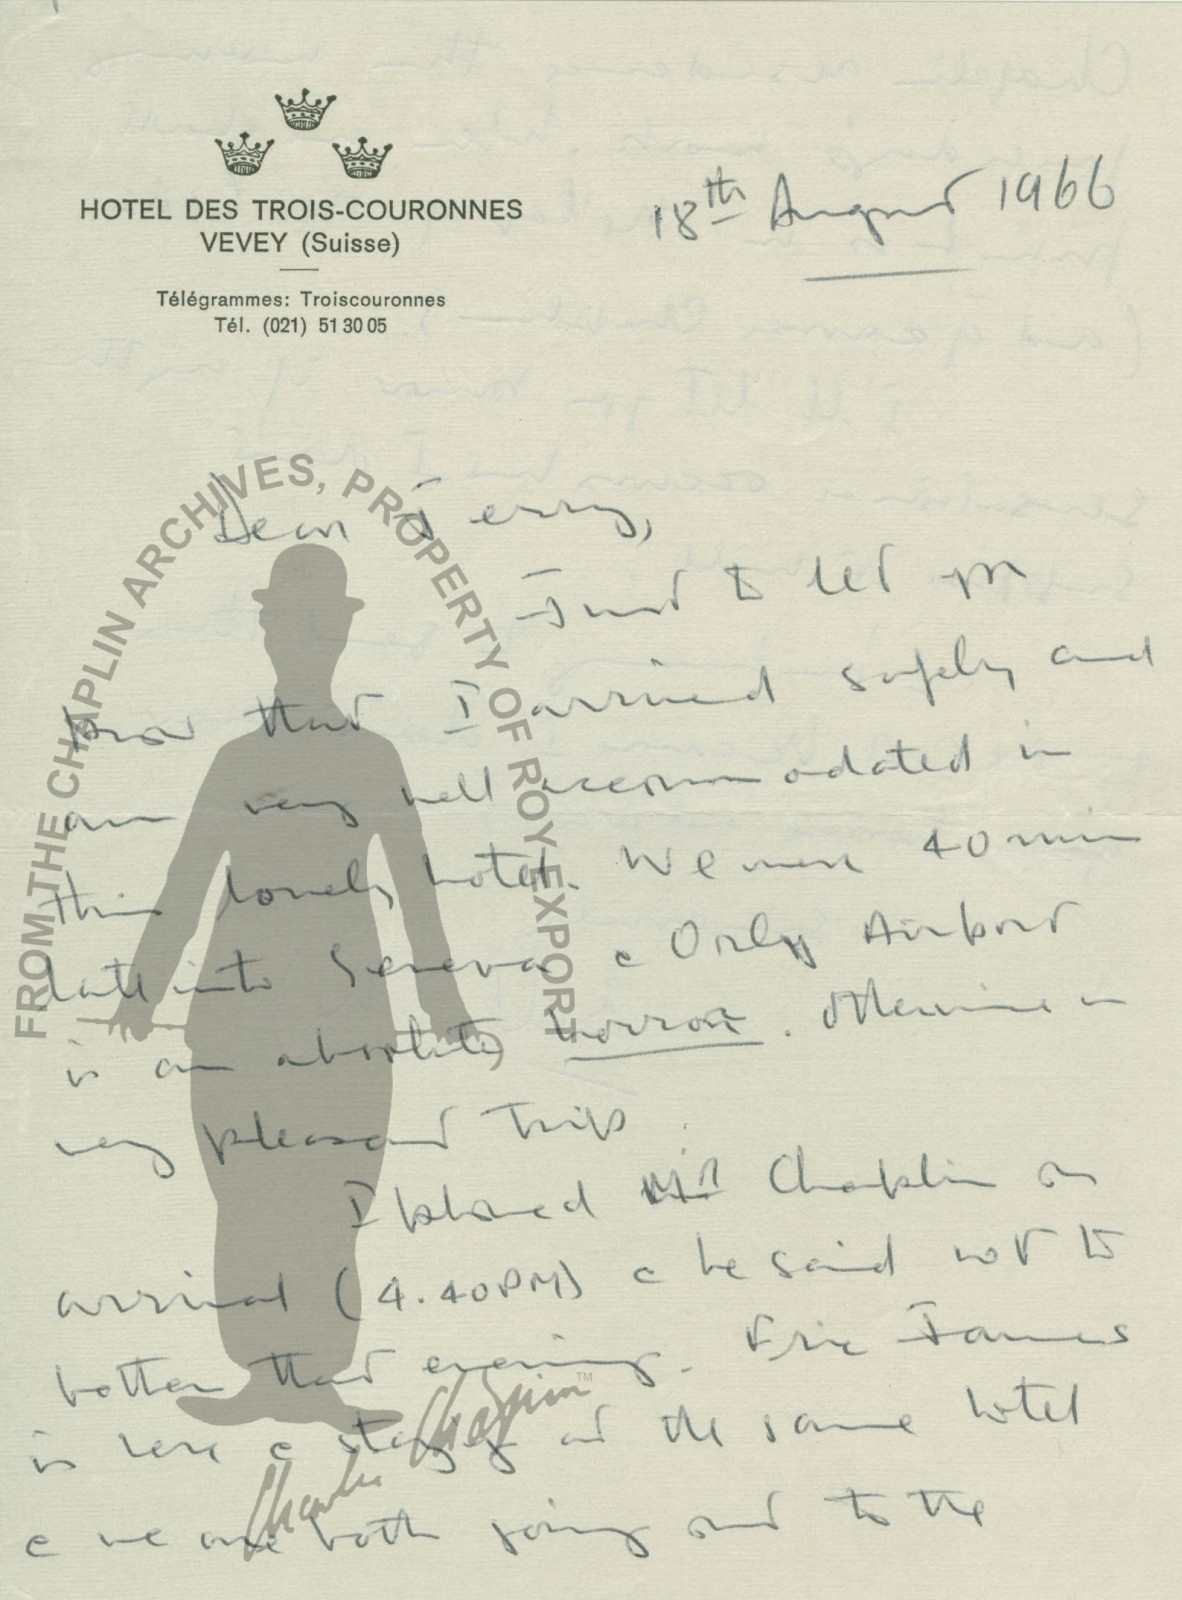 HOTEL DES TROIS-COURONNES
VEVEY (Suisse)
Télégrammes: Troiscouronnes
Tél. (021) 51 30 05
18th August 1966
FROM THE CHAPLIN ARCHIVES, PROPERTY OF ROY EXPORT
Dear Jerry,
Just to let you
know that I arrived safely and
am very well accommodated in
this lovely hotel. We were 40 min
late into Geneva & Orly Airport
is an absolute horror. Otherwise a
very pleasant trip.
I phoned Mr Chaplin on
arrival (4.40PM) & he said not to
bother that evening. Eric James
is here & staying at the same hotel
& we are both going out to the
Charlie Chaplin™